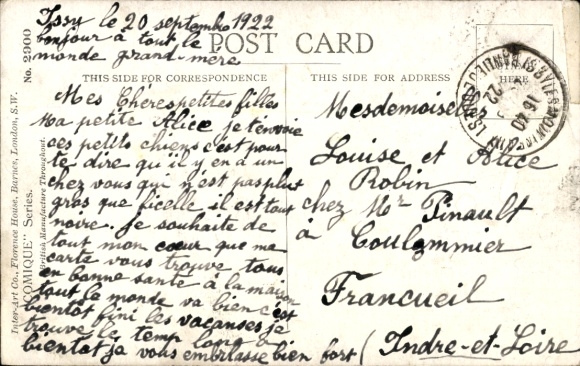 Issy le 20 septembre 1922
bonjour à tout le
monde grand-mère
POST CARD
THIS SIDE FOR CORRESPONDENCE
THIS SIDE FOR ADDRESS
HERE
Mes Chères petites filles
Ma petite Alice je t'envoie
ces petits chiens c'est pour
te dire qu'il y en a un
chez vous qui n'est pas plus
gros que ficelle il est tout
noire. je souhaite de
tout mon cœur que ma
carte vous trouve tous
en bonne santé à la maison
tout le monde va bien c'est
bientôt fini les vacanses je
trouve le temp long a
bientôt je vous embrasse bien fort
Mesdemoiselles
Louise et Alice
Robin
chez Mr Pinault
à Coulommier
Francueil
(Indre-et-Loire
Inter-Art Co., Florence House, Barnes, London, S.W.
"COMIQUE" Series.
British Manufacture Throughout.
No. 2900